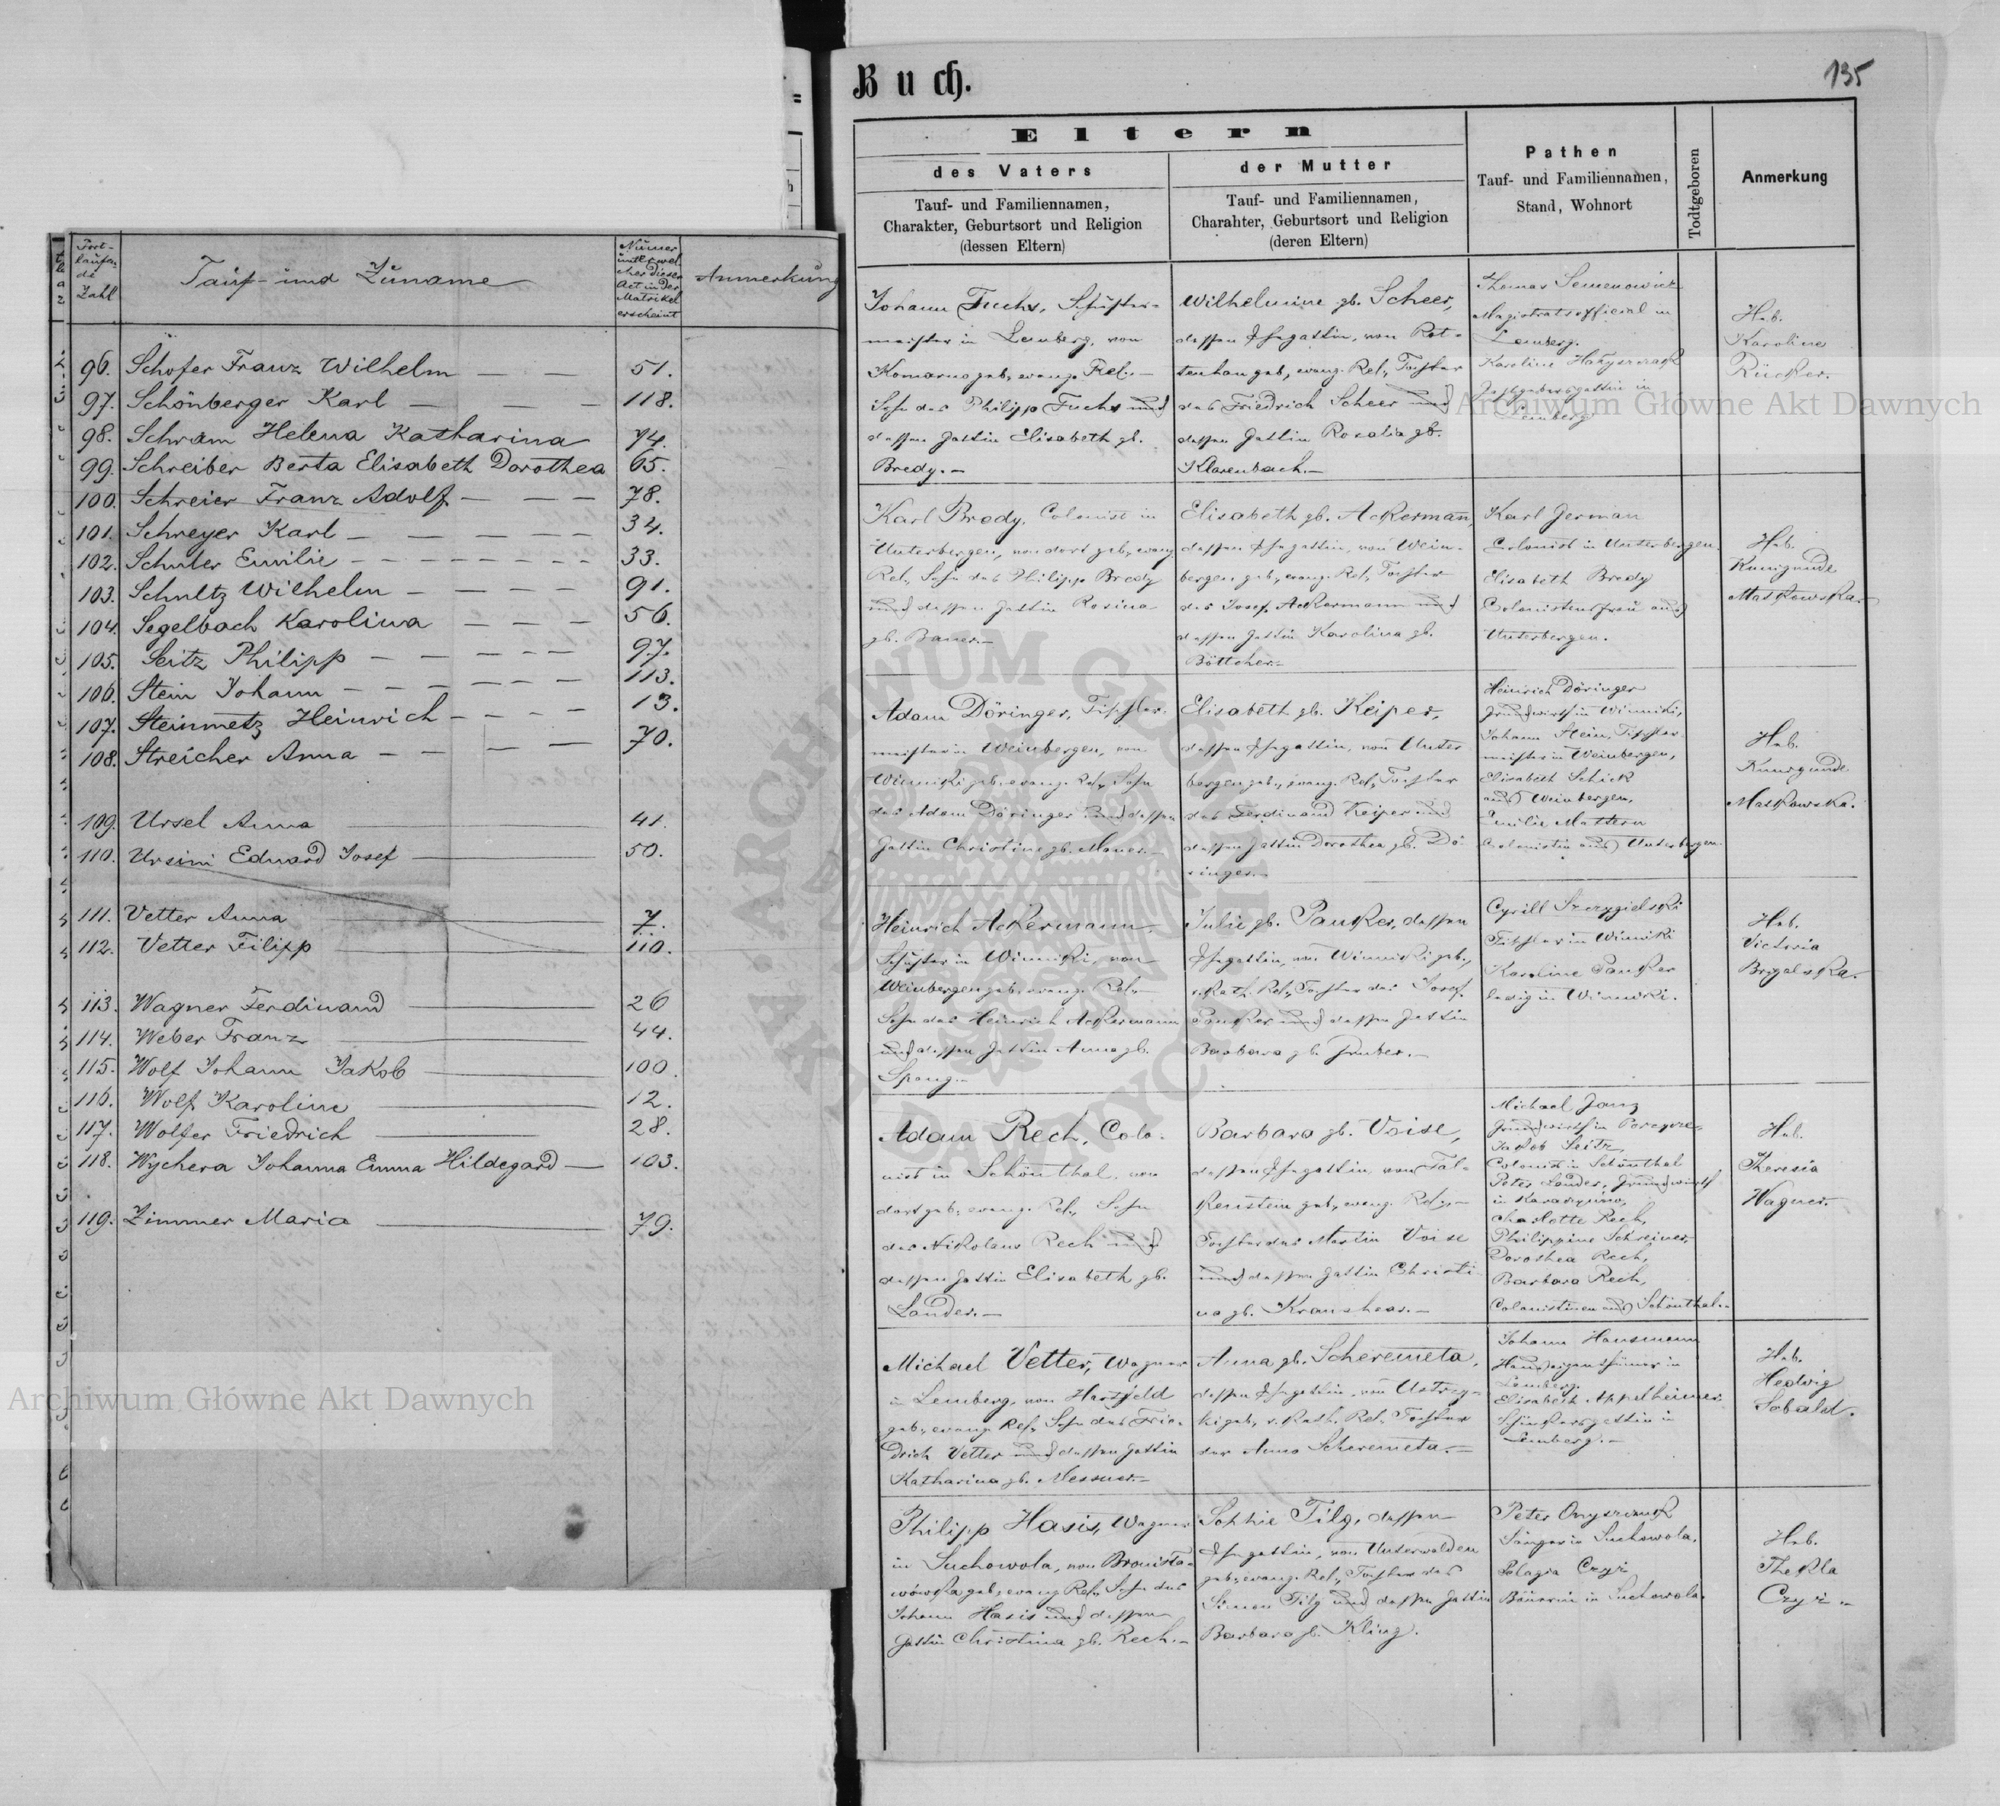 Fort-
laufen-
de
Zahl
Tauf- und Zuname
Numer
unter wel-
cher dieser
Act in der
Matrikel
erscheint
Anmerkung
96. Schofer Franz Wilhelm — — 51.
97. Schönberger Karl — — — 118.
98. Schram Helena Katharina 74.
99. Schreiber Berta Elisabeth Dorothea 65.
100. Schreier Franz Adolf — — — 78.
101. Schreyer Karl — — — — — 34.
102. Schuler Emilie — — — — — — — 33.
103. Schultz Wilhelm — — — — 91.
104. Segelbach Karolina — — — 56.
105. Seitz Philipp — — — — — 97.
106. Stein Johann — — — — — — 113.
107. Steinmetz Heinrich — — — — 13.
108. Streicher Anna — — — — 70.
109. Ursel Anna 41.
110. Ursini Eduard Josef 50.
111. Vetter Anna 7.
112. Vetter Filipp 110.
113. Wagner Ferdinand 26
114. Weber Franz 44.
115. Wolf Johann Jakob 100.
116. Wolf Karoline 12.
117. Wolfer Friedrich 28.
118. Wychera Johanna Emma Hildegard — 103.
119. Zimmer Maria 79.
Buch.
135
Eltern
des Vaters
Tauf- und Familiennamen,
Charakter, Geburtsort und Religion
(dessen Eltern)
der Mutter
Tauf- und Familiennamen,
Charahter, Geburtsort und Religion
(deren Eltern)
Pathen
Tauf- und Familiennamen,
Stand, Wohnort
Todtgeboren
Anmerkung
Johann Fuchs, Schuster-
meister in Lemberg, von
Komarno geb, evang. Rel. —
Sohn des Philipp Fuchs und
dessen Gattin Elisabeth gb.
Bredy. —
Wilhelmine gb. Scheer,
dessen Ehegattin, von Rot-
tenhan geb, evang. Rel, Tochter
des Friedrich Scheer und
dessen Gattin Rosalia gb.
Klarenbach. —
Thomas Semenowicz
Magistratsofficial in
Lemberg.
Karoline
in
Lemberg
Heb.
Karoline
Rücker.
Karl Bredy, Colonist in
Unterbergen, von dort geb, evang
Rel, Sohn des Philipp Bredy
und dessen Gattin Rosina
gb. Bauer. —
Elisabeth gb. Ackerman,
dessen Ehegattin, von Wein-
bergen geb, evang. Rel, Tochter
des Josef Ackermann und
dessen Gattin Karolina gb.
Böttcher. —
Karl German
Colonist in Unterbergen.
Elisabeth Bredy
Colonistensfrau aus
Unterbergen.
Heb.
Kunigunde
Maskowska.
Adam Döringer, Tischler-
meister in Weinbergen, von
Winniki geb, evang. Rel, Sohn
des Adam Döringer und dessen
Gattin Christine gb. Mauer. —
Elisabeth gb. Keiper,
dessen Ehegattin, von Unter
bergen geb, evang. Rel, Tochter
des Ferdinand Keiper und
dessen Gattin Dorothea gb. Dö-
ringer. —
Heinrich Döringer
Grundwirth in Winniki,
Johann Stein, Tischler-
meister in Weinbergen,
Elisabeth Schick
aus Weinbergen,
Emilie Mattern
Colonistin aus Unterbergen.
Heb.
Kunegunde
Maskowska.
Heinrich Ackermann,
Schuster in Winniki, von
Weinbergen geb, evang. Rel, —
Sohn des Heinrich Ackermann
und dessen Gattin Anna gb.
Spang. —
Julie gb. Panker, dessen
Ehegattin, von Winniki geb,
r. Kath. Rel, Tochter des Josef
Panker und dessen Gattin
Barbara gb. Gruber. —
Cyrill Strzygielski
Tischler in Winniki
Karoline Panker
ledig in Winniki.
Heb.
Victoria
Brygelska.
Adam Rech, Colo-
nist in Schönthal, von
dort geb, evang. Rel, Sohn
des Nikolaus Rech und
dessen Gattin Elisabeth gb.
Lander. —
Barbara gb. Voise,
dessen Ehegattin, von Fal-
kenstein geb, evang. Rel, —
Tochter des Martin Voise
und dessen Gattin Christi-
na gb. Kranshear. —
Michael Janz
Grundwirth in
Jakob Seitz
Colonist in Schönthal
Peter Lander, Grundwirth
in
Charlotte Rech,
Philippine Schreiner,
Dorothea Rech,
Barbara Rech,
Colonistinen aus Schönthal. —
Heb.
Theresia
Wagner.
Michael Vetter, Wagner
in Lemberg, von Hartfeld
geb, evang. Rel, Sohn des Frie-
drich Vetter und dessen Gattin
Katharina gb. Messner. —
Anna gb. Scheremeta,
dessen Ehegattin, von Ustrzy-
ki geb, r. Kath. Rel, Tochter
der Anna Scheremeta. —
Johann Hansmann
Hauseigenthümer in
Lemberg.
Elisabeth Appelheimer
in
Lemberg. —
Heb.
Hedwig
Sobald.
Philipp Hasis, Wagner
in Suchowola, von Bronisła-
wówka geb, evang Rel, Sohn des
Johann Hasis und dessen
Gattin Christina gb. Rech. —
Sophie Filg, dessen
Ehegattin, von Unterwalden
geb, evang. Rel, Tochter des
Simon Filg und dessen Gattin
Barbara gb. Kling.
Peter Onyszczuk
Sänger in Suchowola.
Pelagia Czyż
Bäuerin in Suchowola.
Heb.
Thekla
Czyż. —
Archiwum Główne Akt Dawnych
Archiwum Główne Akt Dawnych
ARCHIWUM GŁÓWNE AKT DAWNYCH